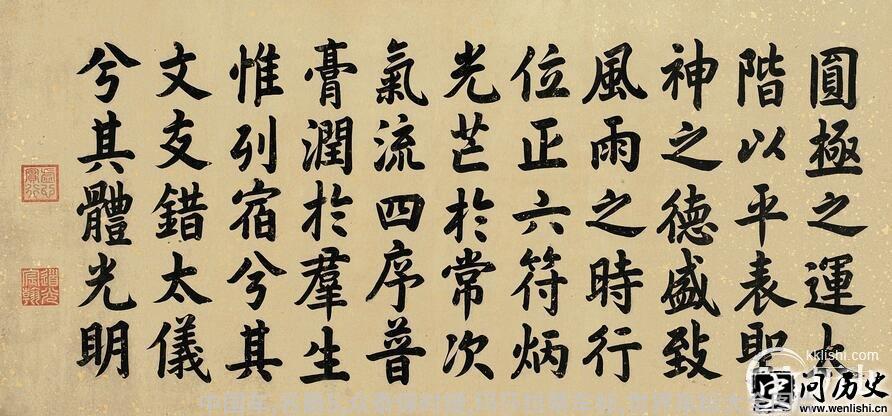 圓極之運
階以平表聖
神之德盛致
風雨之時行
位正六符炳
光芒於常次
氣流四序普
膏潤於羣生
惟列宿兮其
文 錯太儀
兮其體光明
道光宸翰
kklishi.com
问历史
www.wenlishi.cn